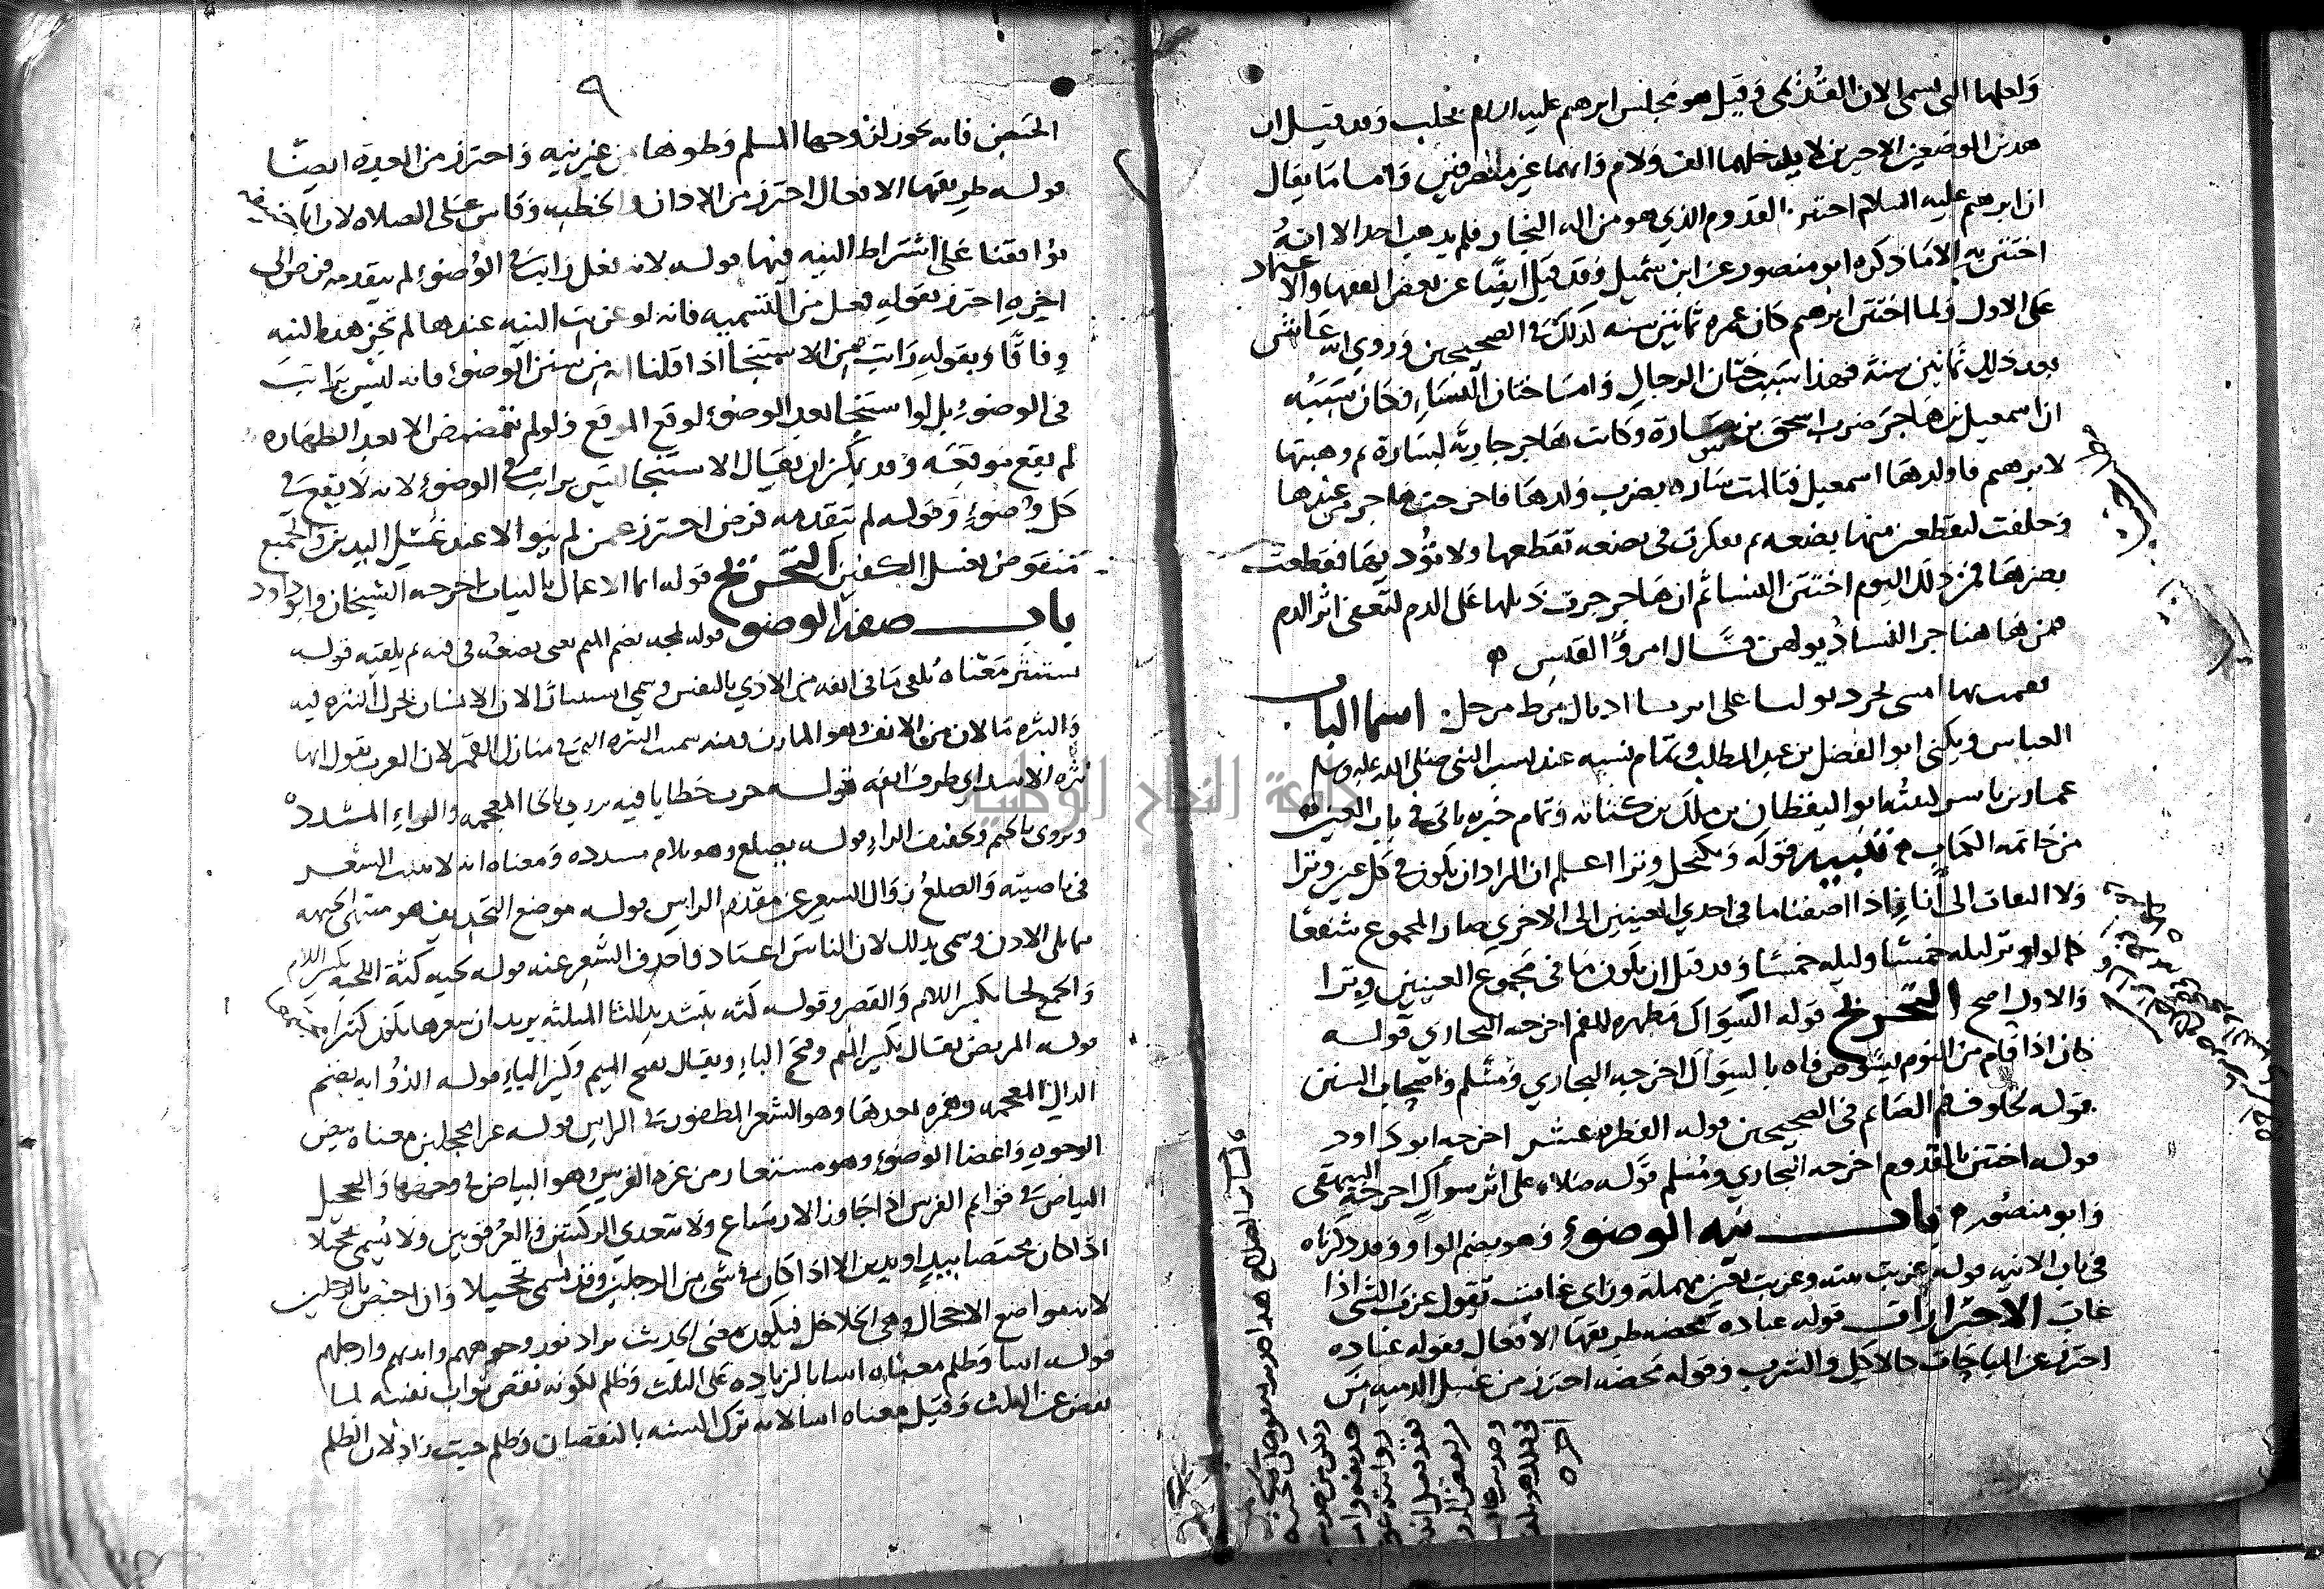 ولعلها التي تسمى الان القدمى وقيل هو مجلس ابرهيم عليه السلام بحلب وقد قيل ان
هذين الموضعين الاخيرين لا يدخلهما الف ولام وانهما غير منصرفين واما ما يقال
ان ابرهيم عليه السلام اختتن القدوم الذي هو من اله النجار فلم يذهب احد الا انه
اختتن به الا ما ذكره ابو منصور عن ابن شميل وقد قيل ايضا عن بعض الفقها والاعتماد
على الاول ولما اختتن ابرهيم كان عمره ثمانين سنه كذلك في الصحيحين وروي انه عاش
بعد ذلك ثمانين سنة فهذا سبب ختان الرجال واما ختان النساء فكان سببه
ان اسمعيل بن هاجر ضرب اسحق بن سارة وكانت هاجر جارية لسارة ثم وهبتها
لابرهيم فاولدها اسمعيل فقالت ساره يضرب ولدها فاخرجت هاجر من عندها
وحلفت لتقطعن منها بضعه ثم فكرت في بضعه تقطعها ولا تؤديها فقطعت
بظرها فمن ذلك اليوم اختتن النسا ثم ان هاجر جرت ذيلها على الدم لتعفى اثر الدم
فمن هاهنا جر النسا ذيولهن قال امرؤ القيس
اسما الباب
العباس ويكنى ابو الفضل بن عبد المطلب وتمام نسبه عند نسب النبي صلى الله عليه وسلم
عمار بن ياسر كنيته ابو اليقظان بن ملك بن كنانه وتمام خبره ياتى في باب
من خاتمه الكتاب تنبيه قوله ويكتحل وترا اعلم ان المراد ان يكون في كل عين وترا
ولا التفات الى انا اذا اضفنا ما في احدي العينين الى الاخرى صار المجموع شفعا
كما لو اوتر ليله خمسا وليله خمسا وقد قيل ان يكون ما في مجموع العينين وترا
والاول اصح التخريج قوله السواك مطهره للفم اخرجه البخاري قوله
كان اذا قام من النوم يشوص فاه بالسواك اخرجه البخاري ومسلم واصحاب السنن
قوله لخلوف فم الصائم في الصحيحين قوله الفطره عشر اخرجه ابو داود
قوله اختتن بالقدوم اخرجه البخاري ومسلم قوله صلاه على اثر سواك اخرجه البيهقي
وابو منصور باب نيه الوضوء وهو بضم الواو وقد ذكرناه
في باب الانيه قوله عزبت نيته وعزبت بعين مهملة وزاى غابت تقول عزب الشى اذا
غاب الاحترازات قوله عباده محضه طريقها الافعال فقوله عباده
احترز عن المباحات كالاكل والشرب وقوله محضه احترز من غسل الذميه من
٩
الحيض فانه يجوز لزوجها المسلم وطوها من غير نيه واحترز من العدة ايضا
قوله طريقها الافعال احترز من الاذان والخطبه وقاس على الصلاه لان ابا حنيفه
يوافقنا على اشتراط النيه فيها قوله لانه فعل راتب في الوضوء لم يتقدمه فرض الى
اخره احترز بقوله فعل من التسميه فانه لو عزبت النيه عندها لم تجز هذه النيه
وفاقا وبقوله راتب من الاستنجا اذا قلنا انه من سنن الوضوء فانه ليس براتب
في الوضوء بل لو استنجا بعد الوضوء لوقع الموقع ولو لم يتمضمض الا بعد الطهاره
لم يقع موقعه وقد يمكن ان يقال الاستنجا ليس براتب في الوضوء لانه لا يقع في
كل وضوء وقوله لم يتقدمه فرض احترز عمن لم ينو الا عند غسل اليدين والجميع
منقوض بغسل الكفين التخريج قوله انما الاعمال بالنيات اخرجه الشيخان وابو داود
باب صفة الوضوء قوله يمجه بضم الميم يعنى يضعه في فيه ثم يلقيه قوله
يستنثر معناه يلقى ما في انفه من الاذي بالنفس وسمي استنثارا لان الانسان يحرك النثره فيه
والنثره ما لان من الانف وهو المارن ومنه سميت النثره التي في منازل القمر لان العرب تقول انها
نثره الاسد اي طرف انفه قوله خرت خطايا فيه يروي بالخا المعجمه والراء المشدده
ويروى بالجيم وتخفيف الراء قوله يصلع وهو بلام مشدده ومعناه انه لا ينبت الشعر
في ناصيته والصلع زوال الشعر عن مقدم الراس قوله موضع التحذيف هو منتهى الجبهه
مما يلي الاذن وسمى بذلك لان الناس اعتادوا حذف الشعر عنه قوله لحيه كثة اللحيه بكسر اللام
والجمع لحا بكسر اللام والقصر وقوله كثه بتشديد الثا المثلثه يريد ان شعرها يكون كثيرا
قوله المربض يقال بكسر الميم وفتح الباء ويقال بفتح الميم وكسر الباء قوله الذؤابه بضم
الذال المعجمه وهمزه بعدها وهو الشعر المظفور في الراس قوله غر المحجلين معناه بيض
الوجوه واعضا الوضوء وهو مستعار من غرة الفرس وهو البياض في وجهها والتحجيل
البياض في قوائم الفرس اذا جاوز الارساغ ولا يتعدي الركبتين والعرقوبين ولا يسمى تحجيلا
اذا كان مختصا بيد او يدين الا اذا كان في شى من الرجلين وقد يسمى تحجيلا وان اختص بالرجلين
لانه مواضع الاحجال وهى الخلاخل فيكون معنى الحديث مراد نور وجوههم وايديهم وارجلهم
قوله اسا وظلم معناه اسا بالزياده على الثلث وظلم لكونه نقص ثواب نفسه لما
نقص عن الثلث وقيل معناه اسا لانه ترك السنه بالنقصان وظلم حيث زاد لان الظلم
جامعة النجاح الوطنية